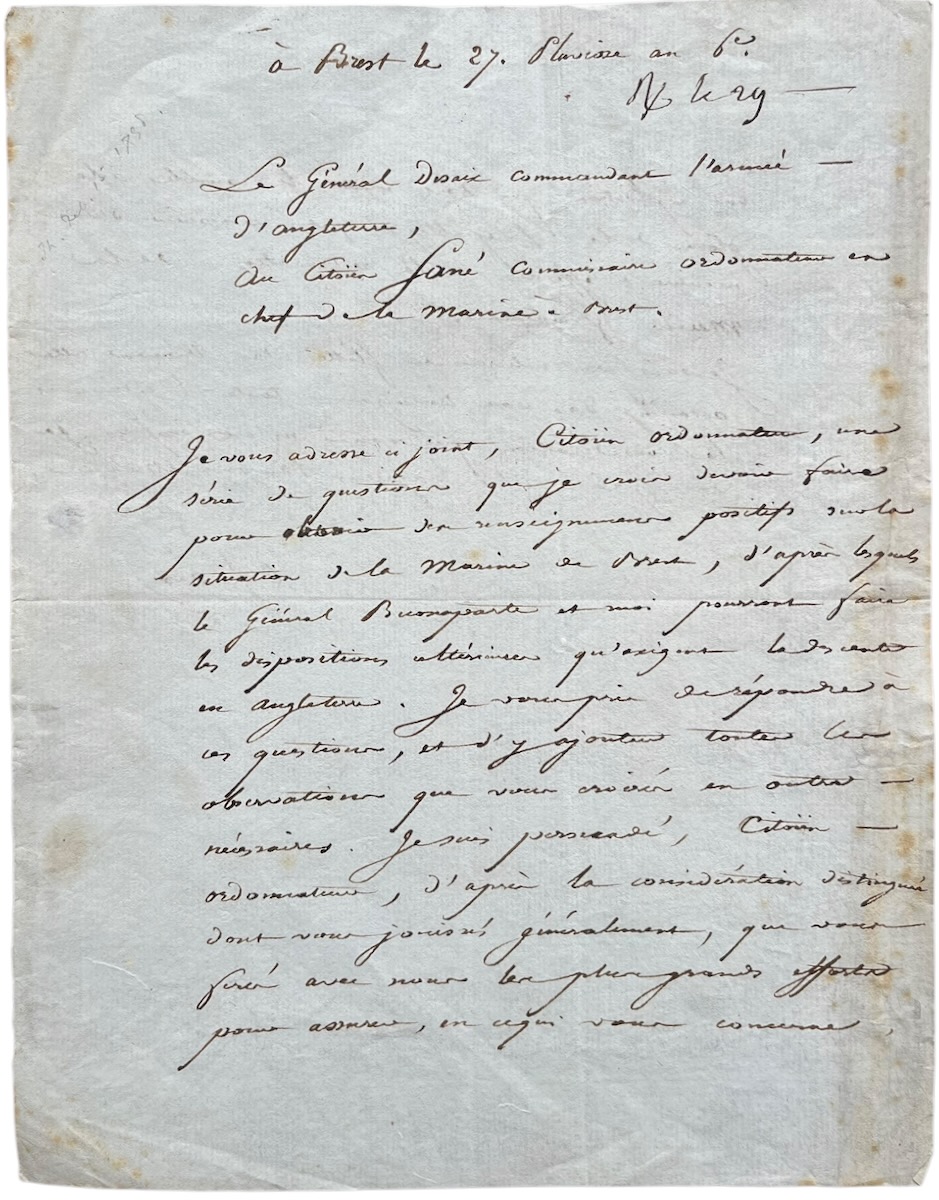 à Brest le 27. Pluviose an 6e.
le 29
Le Général Desaix commandant l'armée
d'angleterre,
au Citoïen Sané commissaire ordonnateur en
chef de la Marine a Brest.
Je vous adresse ci joint, Citoïen ordonnateur, une
série de questions que je crois devoir faire
pour obtenir des renseignemens positifs sur la
situation de la Marine de Brest, d'après lesquels
le Général Buonaparte et moi pourront faire
les dispositions ultérieures qu'exigent la descente
en angleterre. Je vous prie de répondre à
ces questions, et d'y ajouter toutes les
observations que vous croirés en outre
nécessaires. Je suis persuadé, Citoïen
ordonnateur, d'après la considération distinguée
dont vous jouissés généralement, que vous
ferés avec nous les plus grands efforts
pour assurer, en cequi vous concerne,